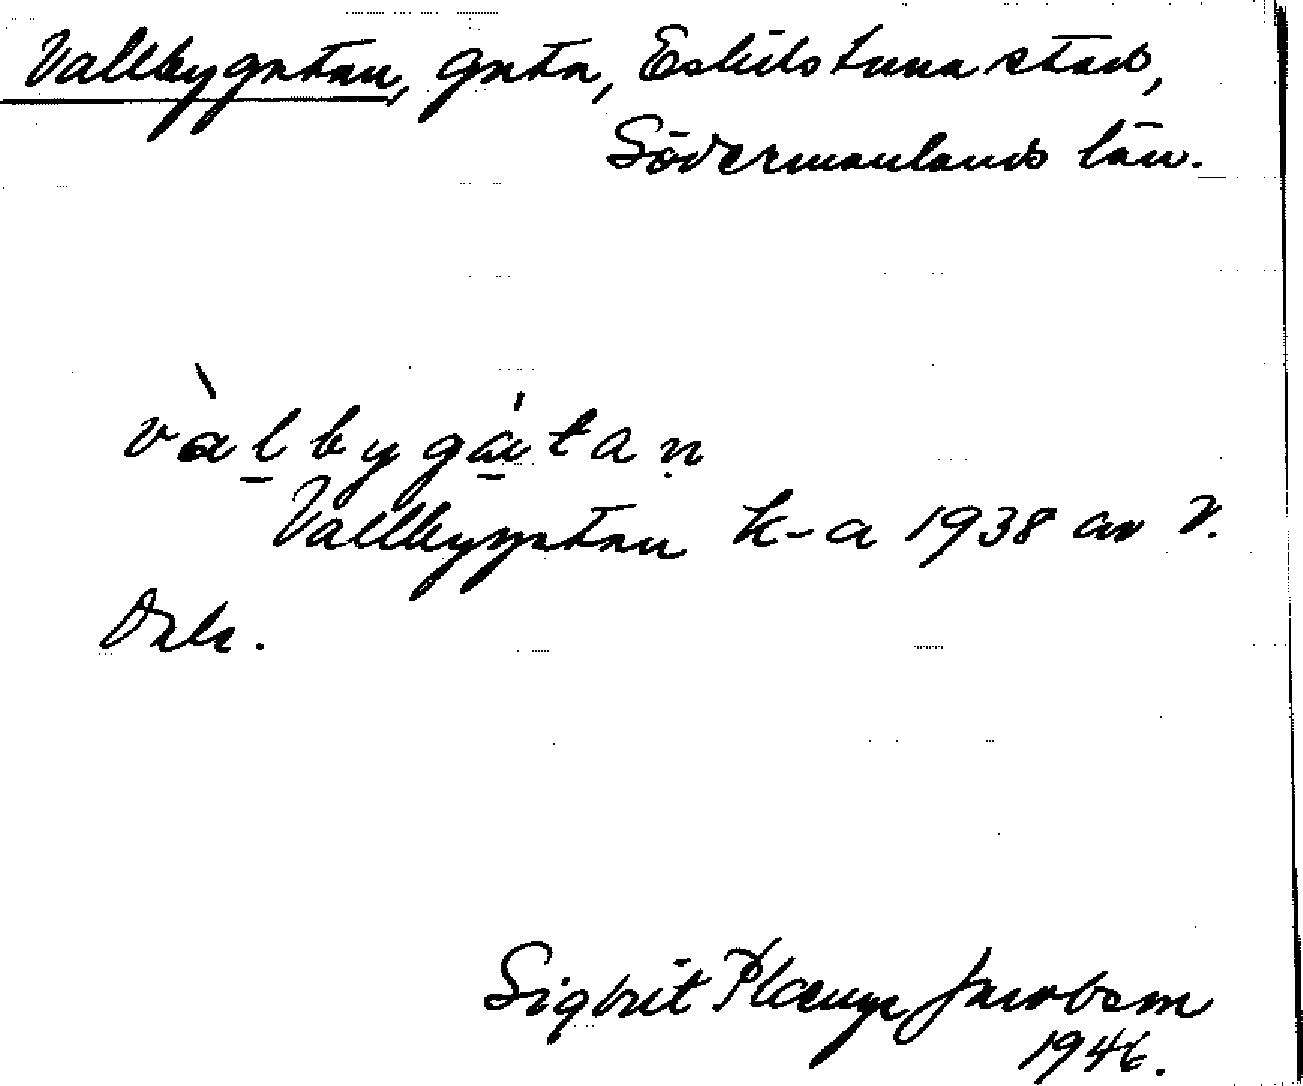 Vallbygatan, gata, Eskilstuna stad,
Södermanlands län.
vàlbygátan
Vallbygatan k-a 1938 av V.
Sigbrit Plænge Jacobson
1946.